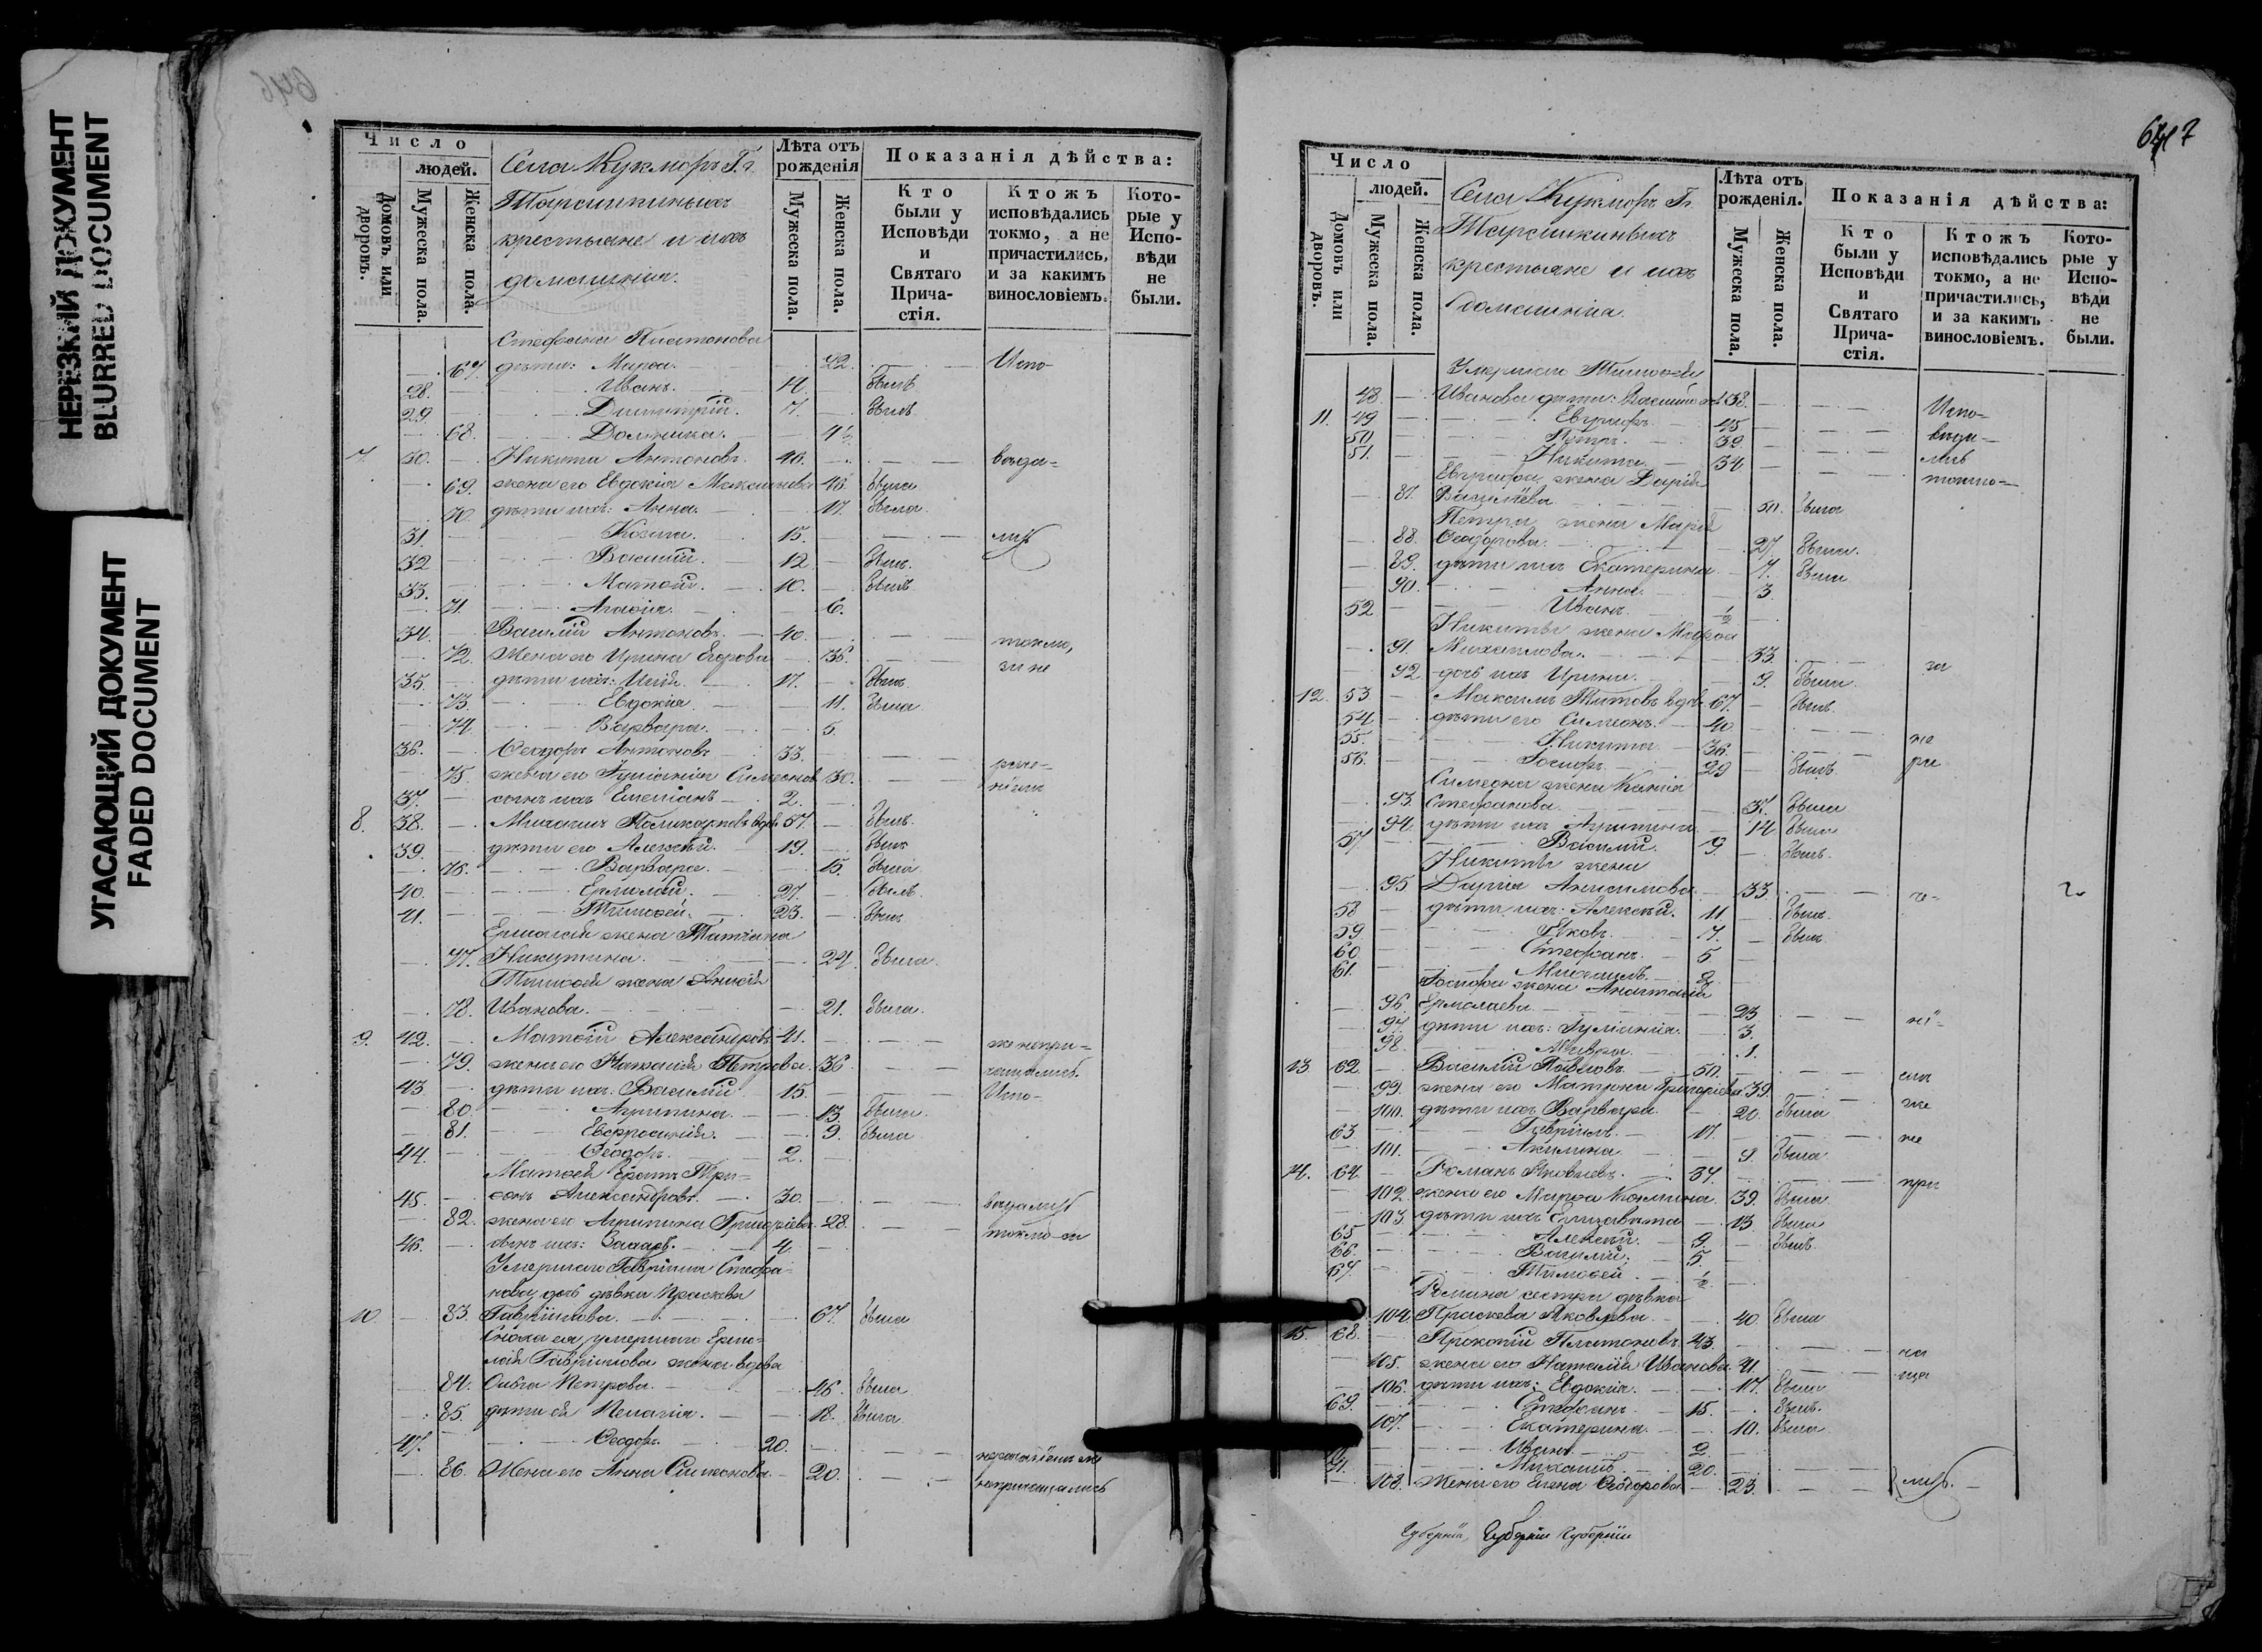 НЕРЕЗКИЙ ДОКУМЕНТ
BLURRED DOCUMENT
УГАСАЮЩИЙ ДОКУМЕНТ
FADED DOCUMENT
646
Число
людей.
Домовъ или дворовъ.
Мужеска пола.
Женска пола.
Села Кукморъ Гг.
Тарашкиныхъ
крестьяне и ихъ
домашнія.
Лѣта отъ рожденія
Мужеска пола.
Женска пола.
Показанія дѣйства:
Кто были у Исповѣди и Святаго Причастія.
Ктожъ исповѣдались токмо, а не причастились, и за какимъ винословіемъ.
Которые у Исповѣди не были.
Стефана Платонова
67. дѣти: Марѳа. 22. Испо-
28. Иванъ. 14. былъ
29. Димитрій. 7. былъ
68. Домника. 4½
7. 30. Никита Антоновъ. 40. вѣда-
69. жена его Евдокія Максимова 46. была
70. дѣти ихъ: Анна. 17. была
31. Козма. 15. лись
32 Василій. 12 былъ.
33. Матѳій. 10. былъ
71. Агаѳія. 6.
34. Василій Антоновъ. 40. токмо,
72. Жена его Ирина Егорова 36. за не
35. дѣти ихъ: Илія. 17. былъ
73. Евдокія. 11. была
74. Варвара. 5.
36. Ѳеодоръ Антоновъ 33. раче-
75. жена его Іуліанія Симеонов. 30. ніемъ
37. сынъ ихъ Емеліанъ 2.
8. 38. Михаилъ Поликарповъ вдов. 57. былъ.
39. дѣти его Алексѣй. 19. былъ
76. Варвара. 15. была
40. Ермолай. 27. былъ
41. Тимоѳей. 23. былъ
Ермолая жена Татіана
77. Никитина. 24. была.
Тимоѳея жена Анисія
78. Иванова. 21. была.
9. 42. Матѳій Александровъ 41. же непри-
79. жена его Наталія Петрова. 36 чащались.
43 дѣти ихъ: Василій 15. Испо-
80. Агрипина. 13 была.
81. Евфросинія. 9. была
44. Ѳеодоръ. 2.
Матѳея братъ Три-
45. фонъ Александровъ. 30.
82. жена его Агрипина Григоріева 28. токмо за
46. сынъ ихъ: Захаръ. 4.
Умершаго Гавріила Стефа-
нова дочь дѣвка Праскева
10 83. Гавріилова. 67. была
Сноха ея, умершаго Ермо-
лая Гавріилова жена вдова
84. Ольга Петрова. 46. была
85. дѣти ея Пелагія. 18. была
47. Ѳеодоръ. 20.
нераченіемъ же
86. Жена его Анна Симеонова. 20. непричащались
647
Число
людей.
Домовъ или дворовъ.
Мужеска пола.
Женска пола.
Села Кукморъ Гг.
Тарашкиныхъ
крестьяне и ихъ
домашнія.
Лѣта отъ рожденія.
Мужеска пола.
Женска пола.
Показанія дѣйства:
Кто были у Исповѣди и Святаго Причастія.
Ктожъ исповѣдались токмо, а не причастились, и за какимъ винословіемъ.
Которые у Исповѣди не были.
Умершаго Тимоѳея
48. Иванова дѣти: 38. Испо-
11. 49 Евграфъ. 45 вѣда-
50. Петръ. 39 лись
51. Никита 34 токмо-
Евграфа жена Дарія
87. Васильева 50. была
Петра жена Марія
88. Ѳеодорова. 27. была.
89. дѣти ихъ Екатерина 7. была
90. Анна. 3.
52 Иванъ. ½
Никиты жена Марѳа
91. Михаилова. 33. за
92 дочь ихъ Ирина. 9. была.
12. 53 Максимъ Титовъ вдов. 67. былъ.
54 дѣти его Симеонъ. 40. не
55. Никита 36. ра
56. Іосифъ. 29 былъ.
Симеона жена Ксенія
93. Стефанова. 37. была
94. дѣти ихъ Агрипина 14. была
57 Василій. 9. былъ.
Никиты жена
95 Дарія Анисимова. 33. че-
58 дѣти ихъ: Алексѣй. 11 былъ.
59 Яковъ. 7. былъ
60. Стефанъ. 5
61. Михаилъ. 2.
Іосифа жена Анастасія
96 Ермолаева 23 ні-
97. дѣти ихъ: Іуліанія. 3.
98. Мавра. 1.
13 62. Василій Павловъ 50. емъ
99. жена его Матрона Григоріева 39. же
100. дѣти ихъ Варвара. 20. была
63 Гавріилъ. 17. не
101. Акилина. 9. была
14. 64. Романъ Яковлевъ. 37. при
102. жена его Марѳа Козмина. 39. была
103. дѣти ихъ Елизавета 13 была
65 Алексѣй. 9. былъ
66. Василій. 5.
67. Тимоѳей. ½
Романа сестра дѣвка
104. Праскева Яковлева 40. была
15. 68. Прокопій Платоновъ 43. ча
105. жена его Наталія Иванова 41. ща
106. дѣти ихъ: Евдокія. 17. была
69. Стефанъ. 15. былъ.
107. Екатерина. 10. была
Иванъ 2
71. Михаилъ 20.
108. Жена его Елена Ѳеодорова 23. лись.
Губерніи, Губерніи Губерніи